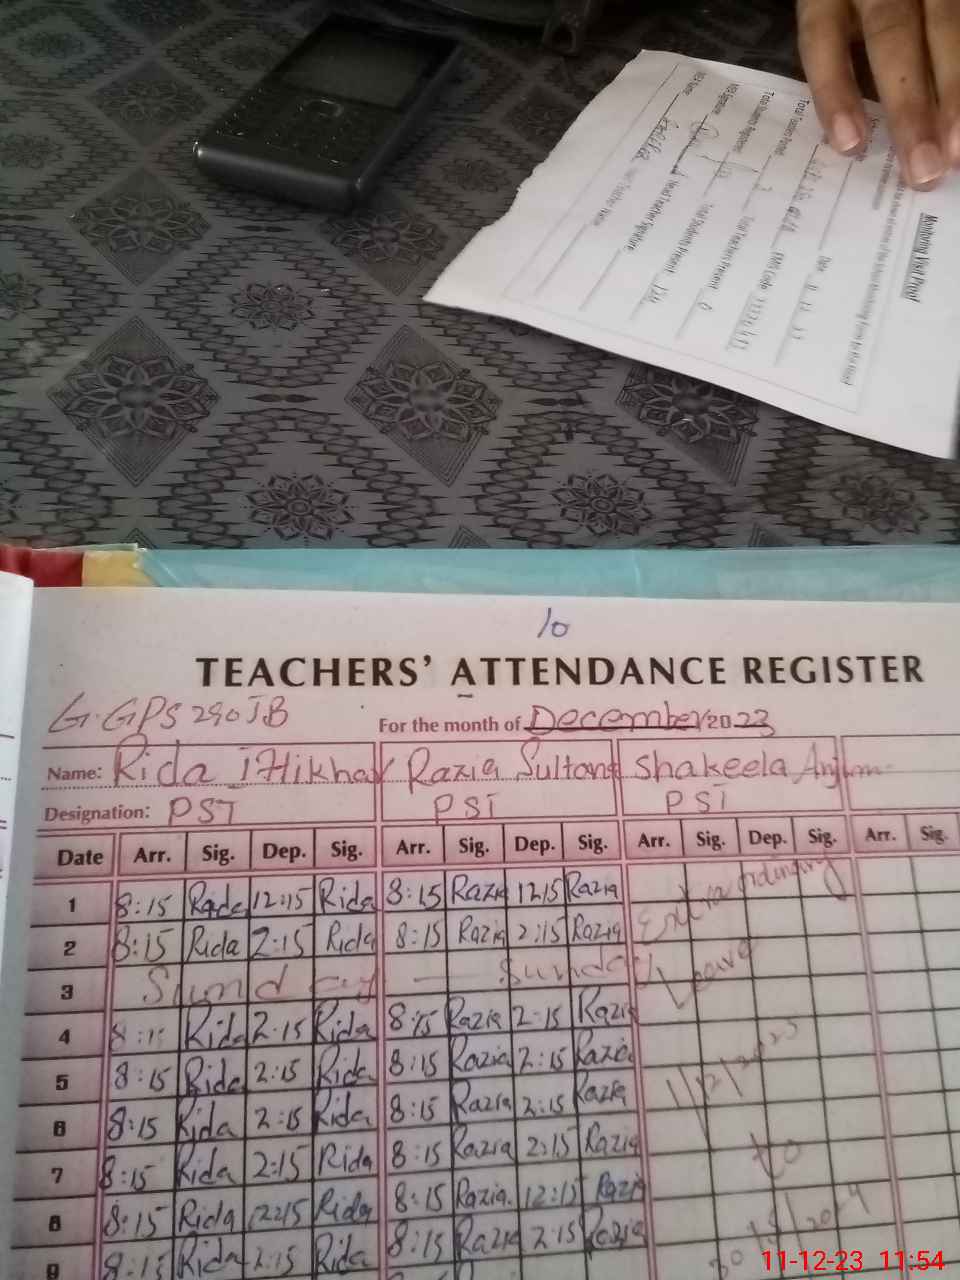 Monitoring Visit Proof
Date
EMIS Code
Total Teachers Posted
Total Teachers Present 0
Total Students Registered
Total Students Present
MEA Signature
Head Teacher Signature
MEA Name
10
TEACHERS' ATTENDANCE REGISTER
G.GPS 290 JB
For the month of December 2023
Name: Rida Iftikhar Razia Sultana Shakeela Anjum
Designation: PST PST PST
Date Arr. Sig. Dep. Sig. Arr. Sig. Dep. Sig. Arr. Sig. Dep. Sig. Arr. Sig.
1 8:15 Rida 12:15 Rida 8:15 Razia 12:15 Razia Extra ordinary
2 8:15 Rida 2:15 Rida 8:15 Razia 2:15 Razia
3 Sunday Sunday Leave
4 8:15 Rida 2:15 Rida 8:15 Razia 2:15 Razia
5 8:15 Rida 2:15 Rida 8:15 Razia 2:15 Razia 1/12/2023
6 8:15 Rida 2:15 Rida 8:15 Razia 2:15 Razia
7 8:15 Rida 2:15 Rida 8:15 Razia 2:15 Razia to
8 8:15 Rida 12:15 Rida 8:15 Razia 12:15 Razia
9 8:15 Rida 2:15 Rida 8:15 Razia 2:15 Razia
11-12-23 11:54